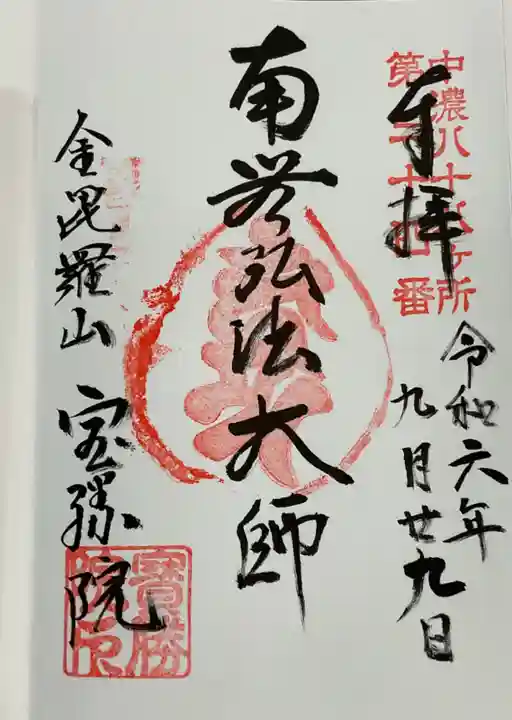 奉拝
中濃八十八ヶ所
第二十四番
令和六年
九月廿九日
南無弘法大師
金毘羅山 宝勝院
寶勝
院印